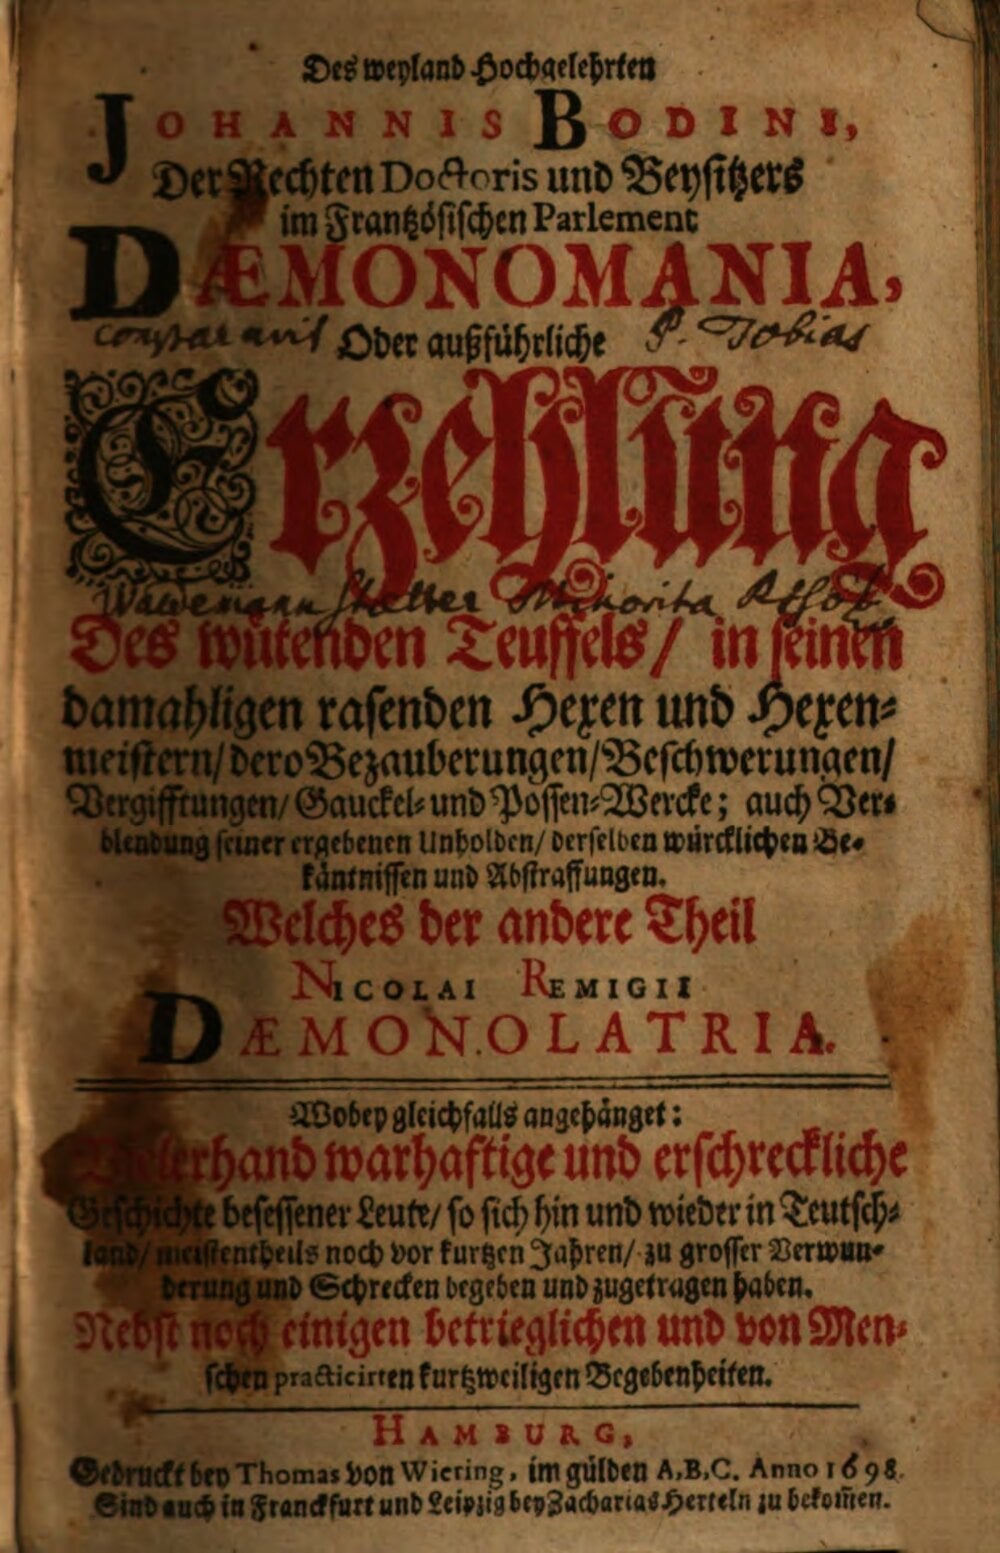 Des weyland Hochgelehrten
JOHANNIS BODINI,
Der Rechten Doctoris und Beysitzers
im Frantzösischen Parlement
DÆMONOMANIA,
Oder außführliche
P. Tobias
Erzehlung
Minorita
Des wütenden Teuffels/ in seinen
damahligen rasenden Hexen und Hexen-
meistern/ dero Bezauberungen/ Beschwerungen/
Vergifftungen/ Gauckel- und Possen-Wercke; auch Ver-
blendung seiner ergebenen Unholden/ derselben würcklichen Be-
käntnissen und Abstraffungen.
Welches der andere Theil
NICOLAI REMIGII
DÆMONOLATRIA.
Wobey gleichfalls angehänget:
Vielerhand warhaftige und erschreckliche
Geschichte besessener Leute/ so sich hin und wieder in Teutsch-
land/ meistentheils noch vor kurtzen Jahren/ zu grosser Verwun-
derung und Schrecken begeben und zugetragen haben.
Nebst noch einigen betrieglichen und von Men-
schen practicirten kurtzweiligen Begebenheiten.
HAMBURG,
Gedruckt bey Thomas von Wiering, im gülden A,B,C. Anno 1698.
Sind auch in Franckfurt und Leipzig bey Zacharias Herteln zu bekom̃en.